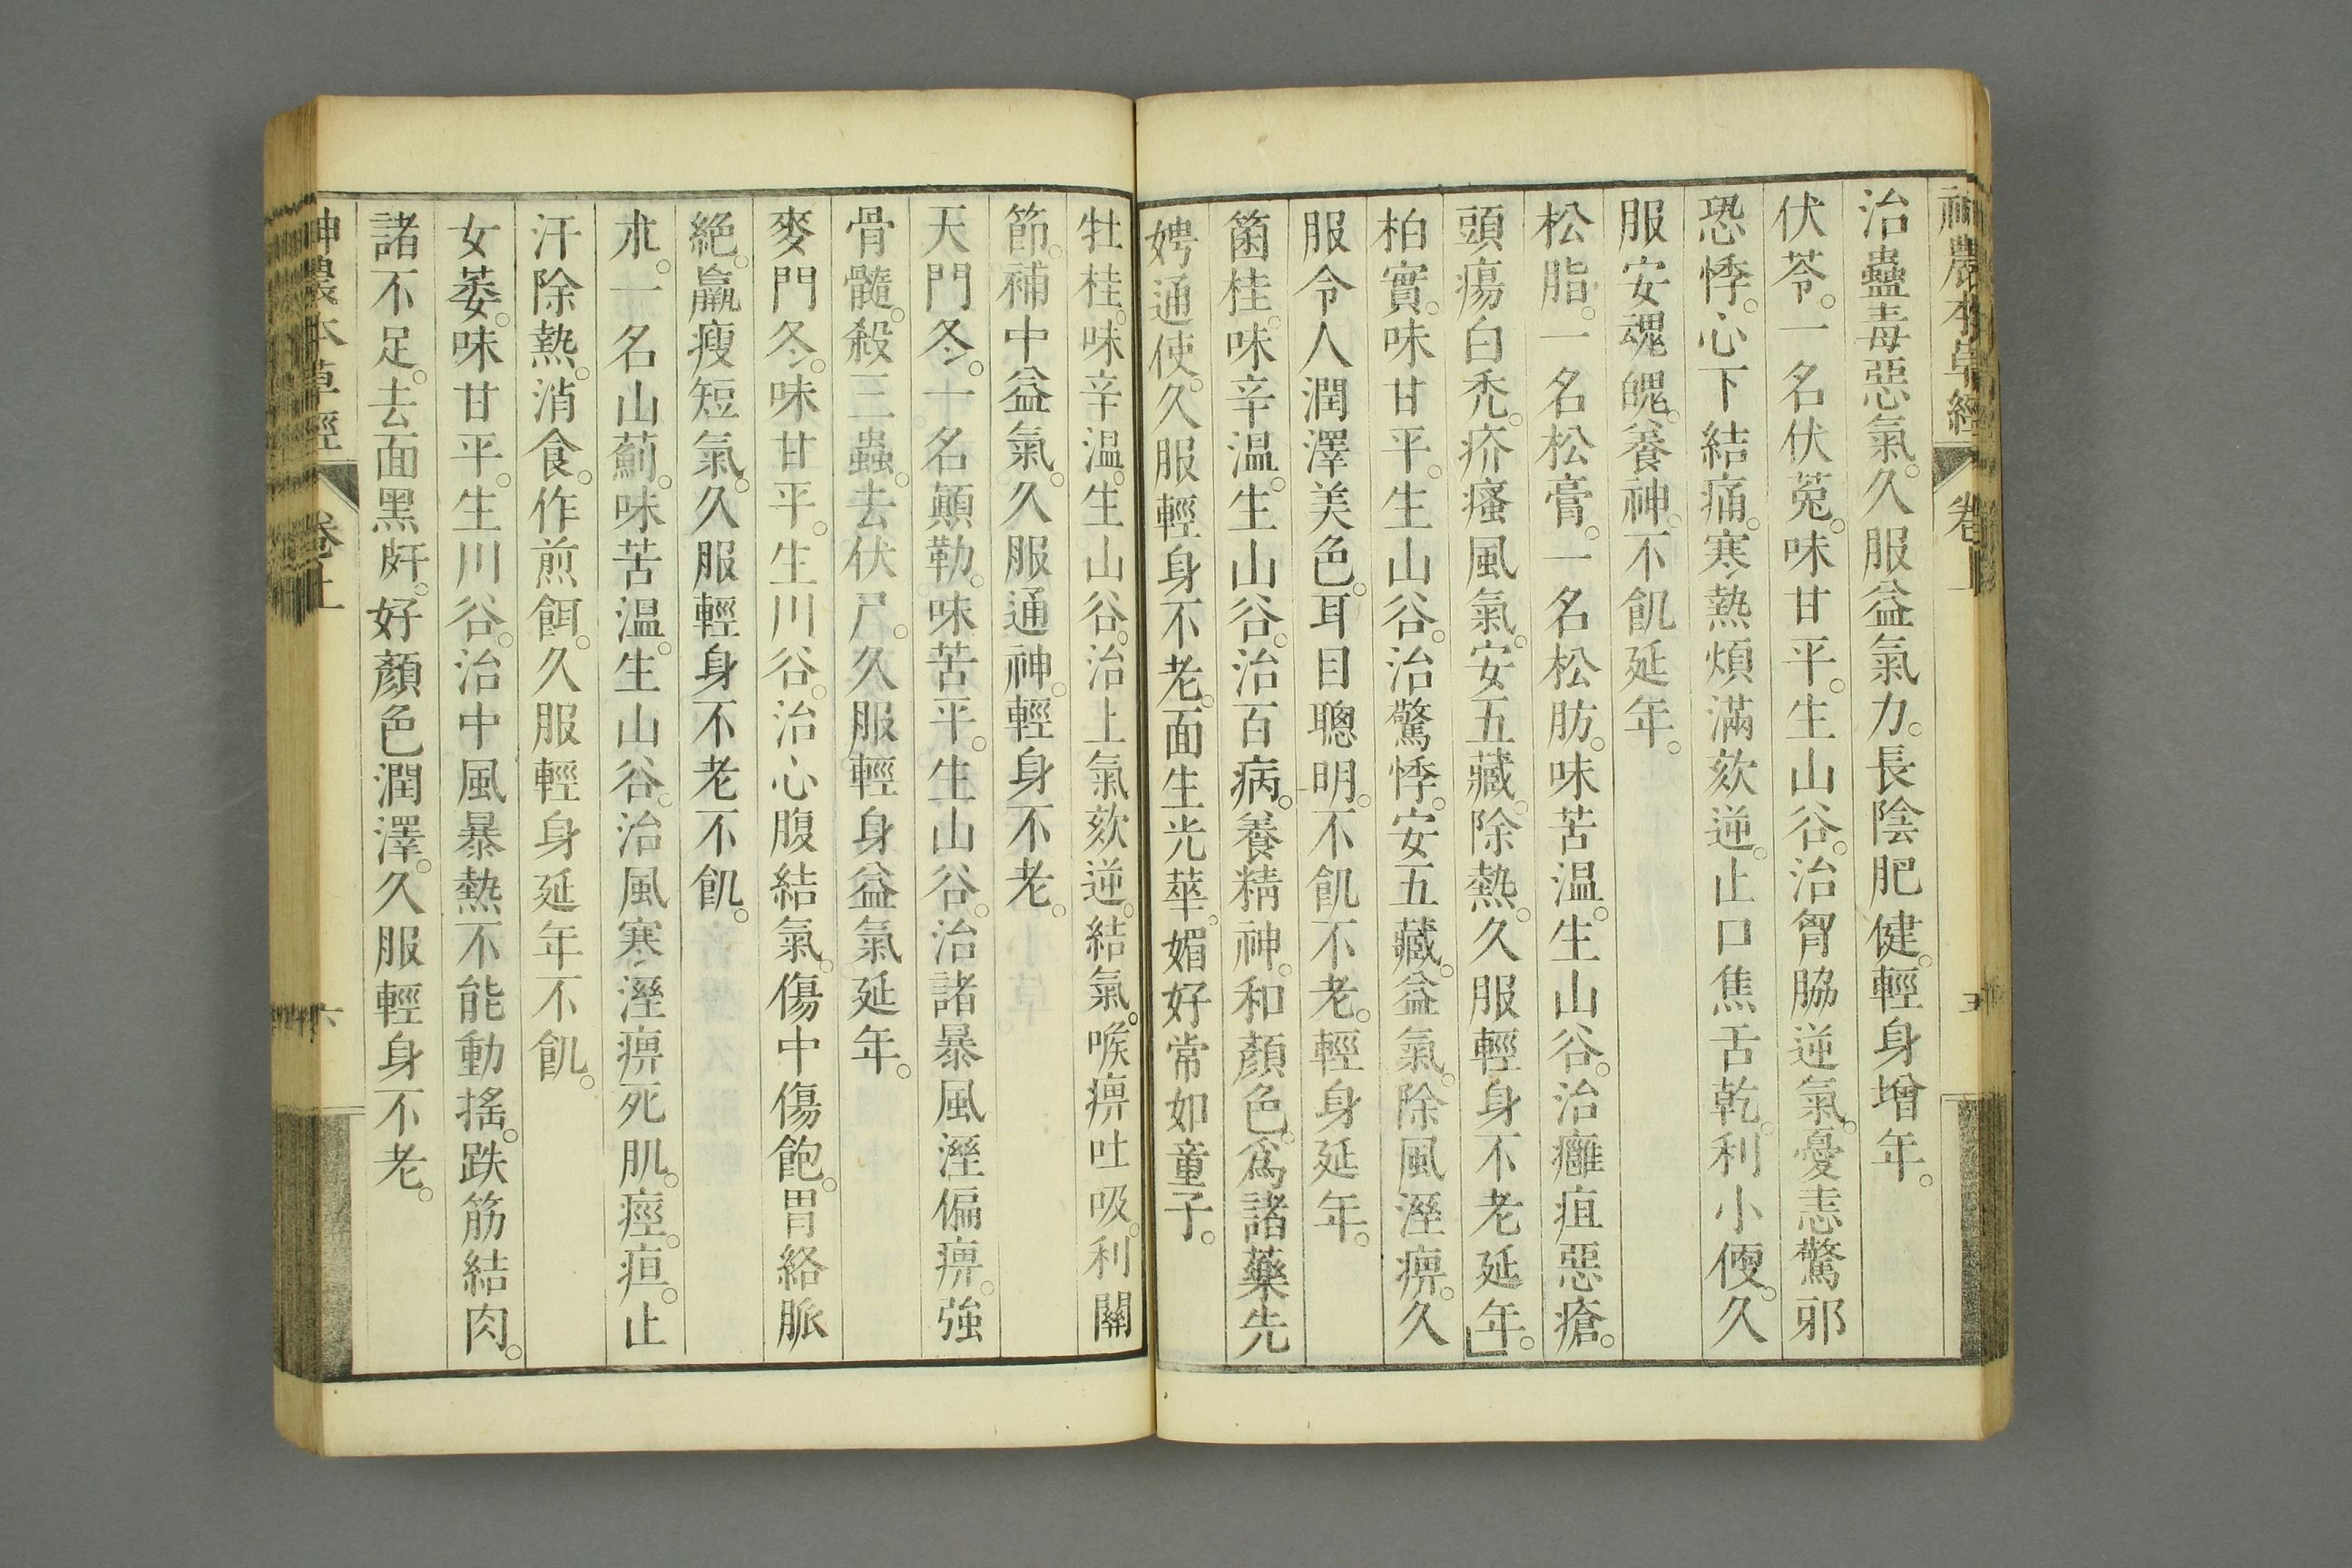 神農本草經 卷上 五
治蠱毒惡氣。久服益氣力。長陰肥健。輕身增年。
伏苓。一名伏菟。味甘平。生山谷。治胷脇逆氣。憂恚驚邪
恐悸。心下結痛。寒熱煩滿欬逆。止口焦舌乾。利小便。久
服安魂魄。養神。不飢延年。
松脂。一名松膏。一名松肪。味苦温。生山谷。治癰疽惡瘡。
頭瘍白禿。疥瘙風氣。安五藏。除熱。久服輕身不老延年。
柏實。味甘平。生山谷。治驚悸。安五藏。益氣。除風溼痹。久
服令人潤澤美色。耳目聰明。不飢不老。輕身延年。
箘桂。味辛温。生山谷。治百病。養精神。和顏色。爲諸藥先
娉通使。久服輕身不老。面生光華。媚好常如童子。
牡桂。味辛温。生山谷。治上氣欬逆。結氣。喉痹吐吸。利關
節。補中益氣。久服通神。輕身不老。
天門冬。一名顚勒。味苦平。生山谷。治諸暴風溼偏痹。強
骨髓。殺三蟲。去伏尸。久服輕身益氣延年。
麥門冬。味甘平。生川谷。治心腹結氣。傷中傷飽。胃絡脈
絕。羸瘦短氣。久服輕身不老不飢。
朮。一名山薊。味苦温。生山谷。治風寒溼痹死肌。痙。疸。止
汗除熱。消食。作煎餌。久服輕身延年不飢。
女萎。味甘平。生川谷。治中風暴熱不能動搖。跌筋結肉。
諸不足。去面黑皯。好顏色潤澤。久服輕身不老。
神農本草經 卷上 六